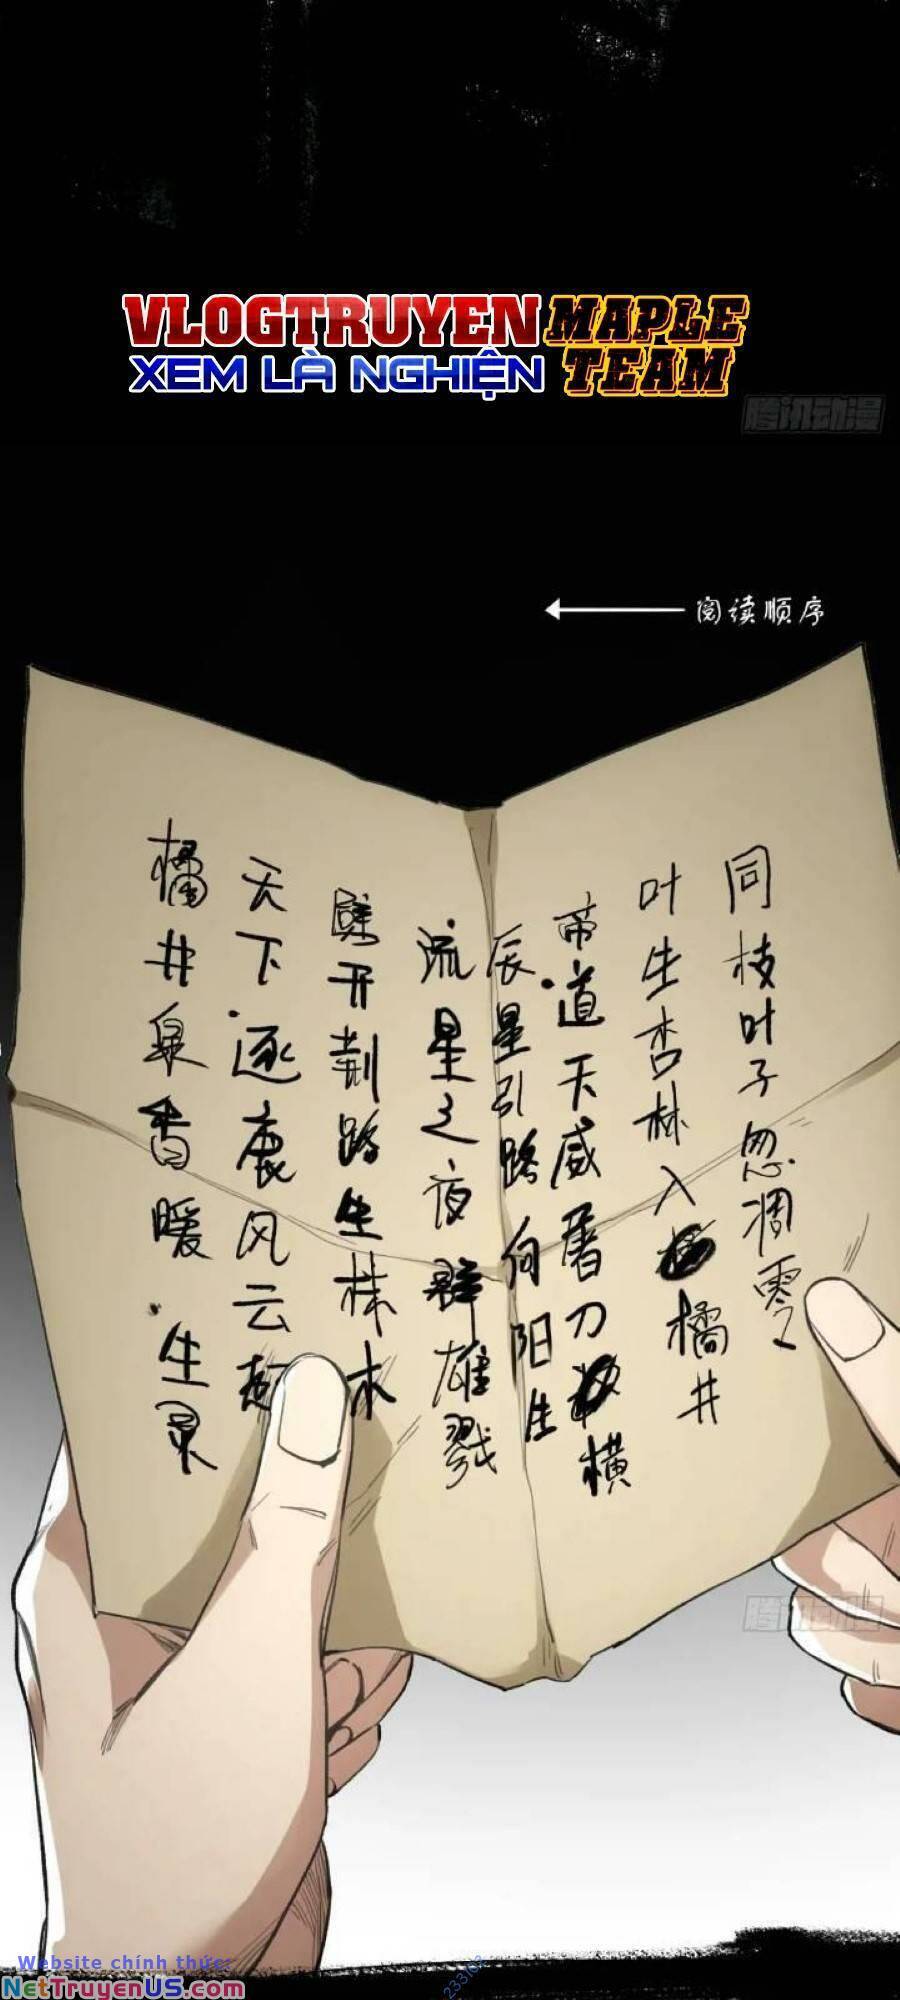 VLOGTRUYEN MAPLE
XEM LÀ NGHIỆN TEAM
腾讯动漫
阅读顺序
同枝叶子忽凋零
叶生杏林入橘井
帝道天威屠刀横
辰星引路向阳生
流星之夜群雄戮
劈开荆路生株木
天下逐鹿风云起
橘井泉香暖生灵
腾讯动漫
Website chính thức:
NetTruyenUS.com